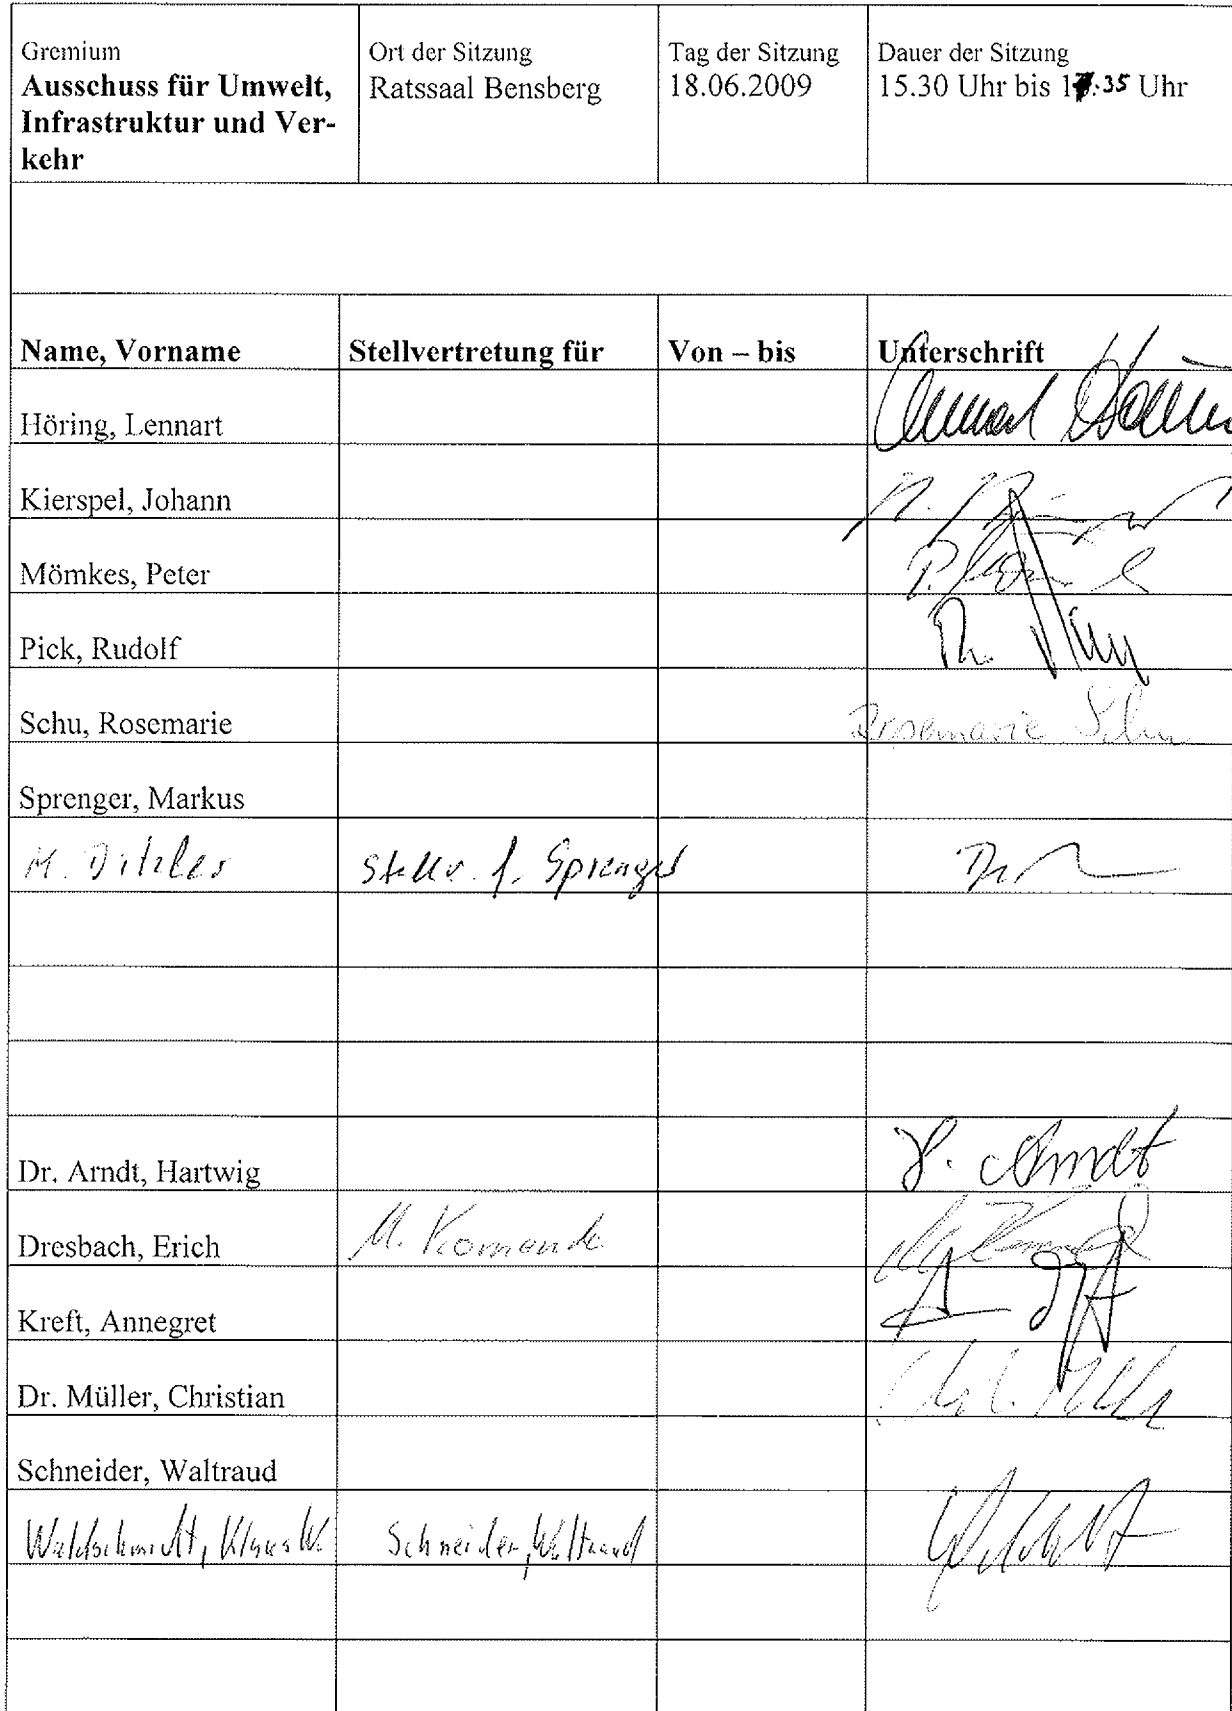 Gremium
Ausschuss für Umwelt,
Infrastruktur und Ver-
kehr
Ort der Sitzung
Ratssaal Bensberg
Tag der Sitzung
18.06.2009
Dauer der Sitzung
15.30 Uhr bis 17.35 Uhr
Name, Vorname Stellvertretung für Von – bis Unterschrift
Höring, Lennart
Kierspel, Johann
Mömkes, Peter
Pick, Rudolf
Schu, Rosemarie Rosemarie Schu
Sprenger, Markus
M. Ditzler Stellv. f. Sprenger
Dr. Arndt, Hartwig H. Arndt
Dresbach, Erich M. Komenda
Kreft, Annegret
Dr. Müller, Christian
Schneider, Waltraud
Waldschmidt, Klaus W. Schneider, Waltraud